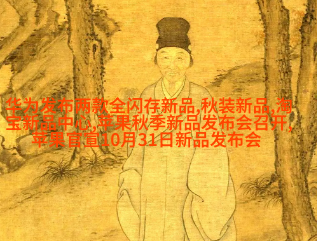 华为发布两款全闪存新品,秋装新品,淘
宝新品中心,苹果秋季新品发布会召开,
苹果官宣10月31日新品发布会